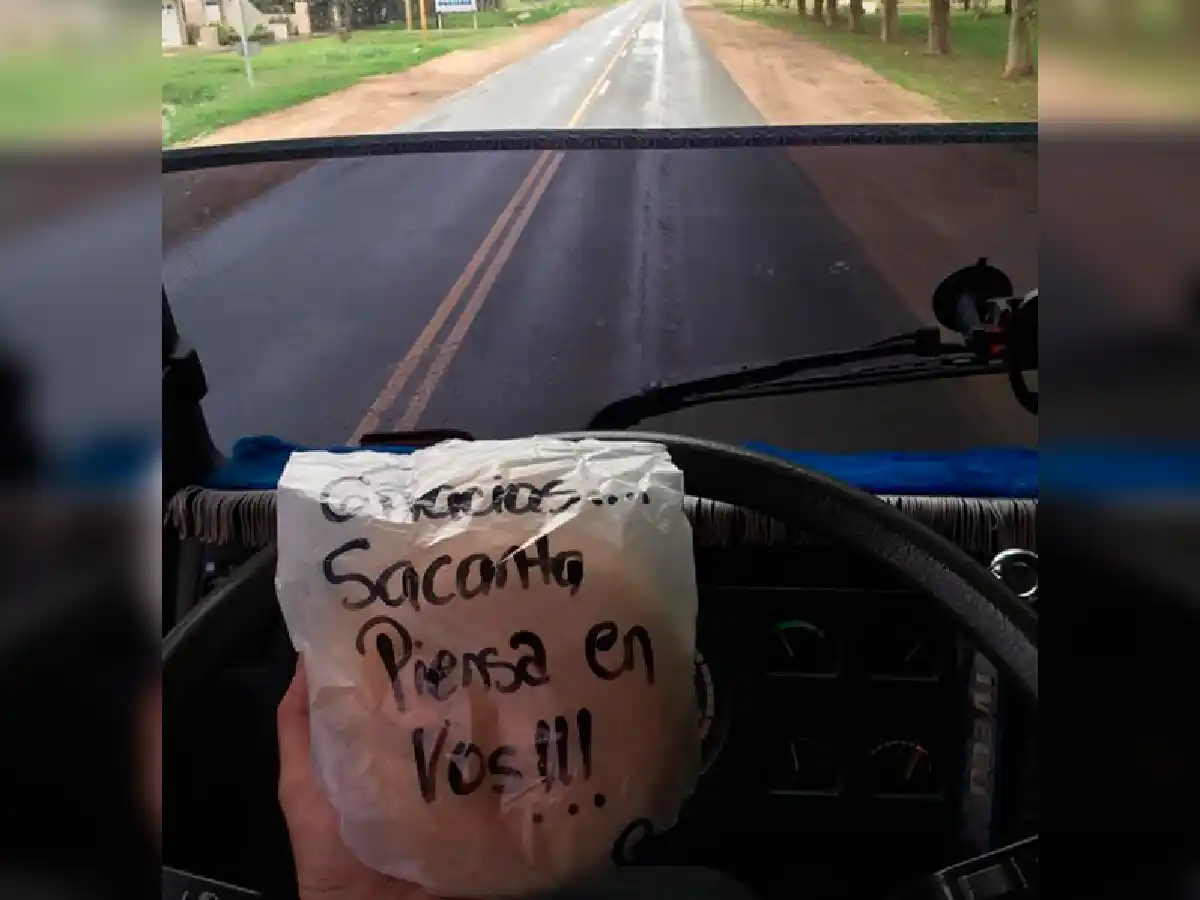 Gracias....
Sacanta
Piensa en
Vos!!!
IVECO